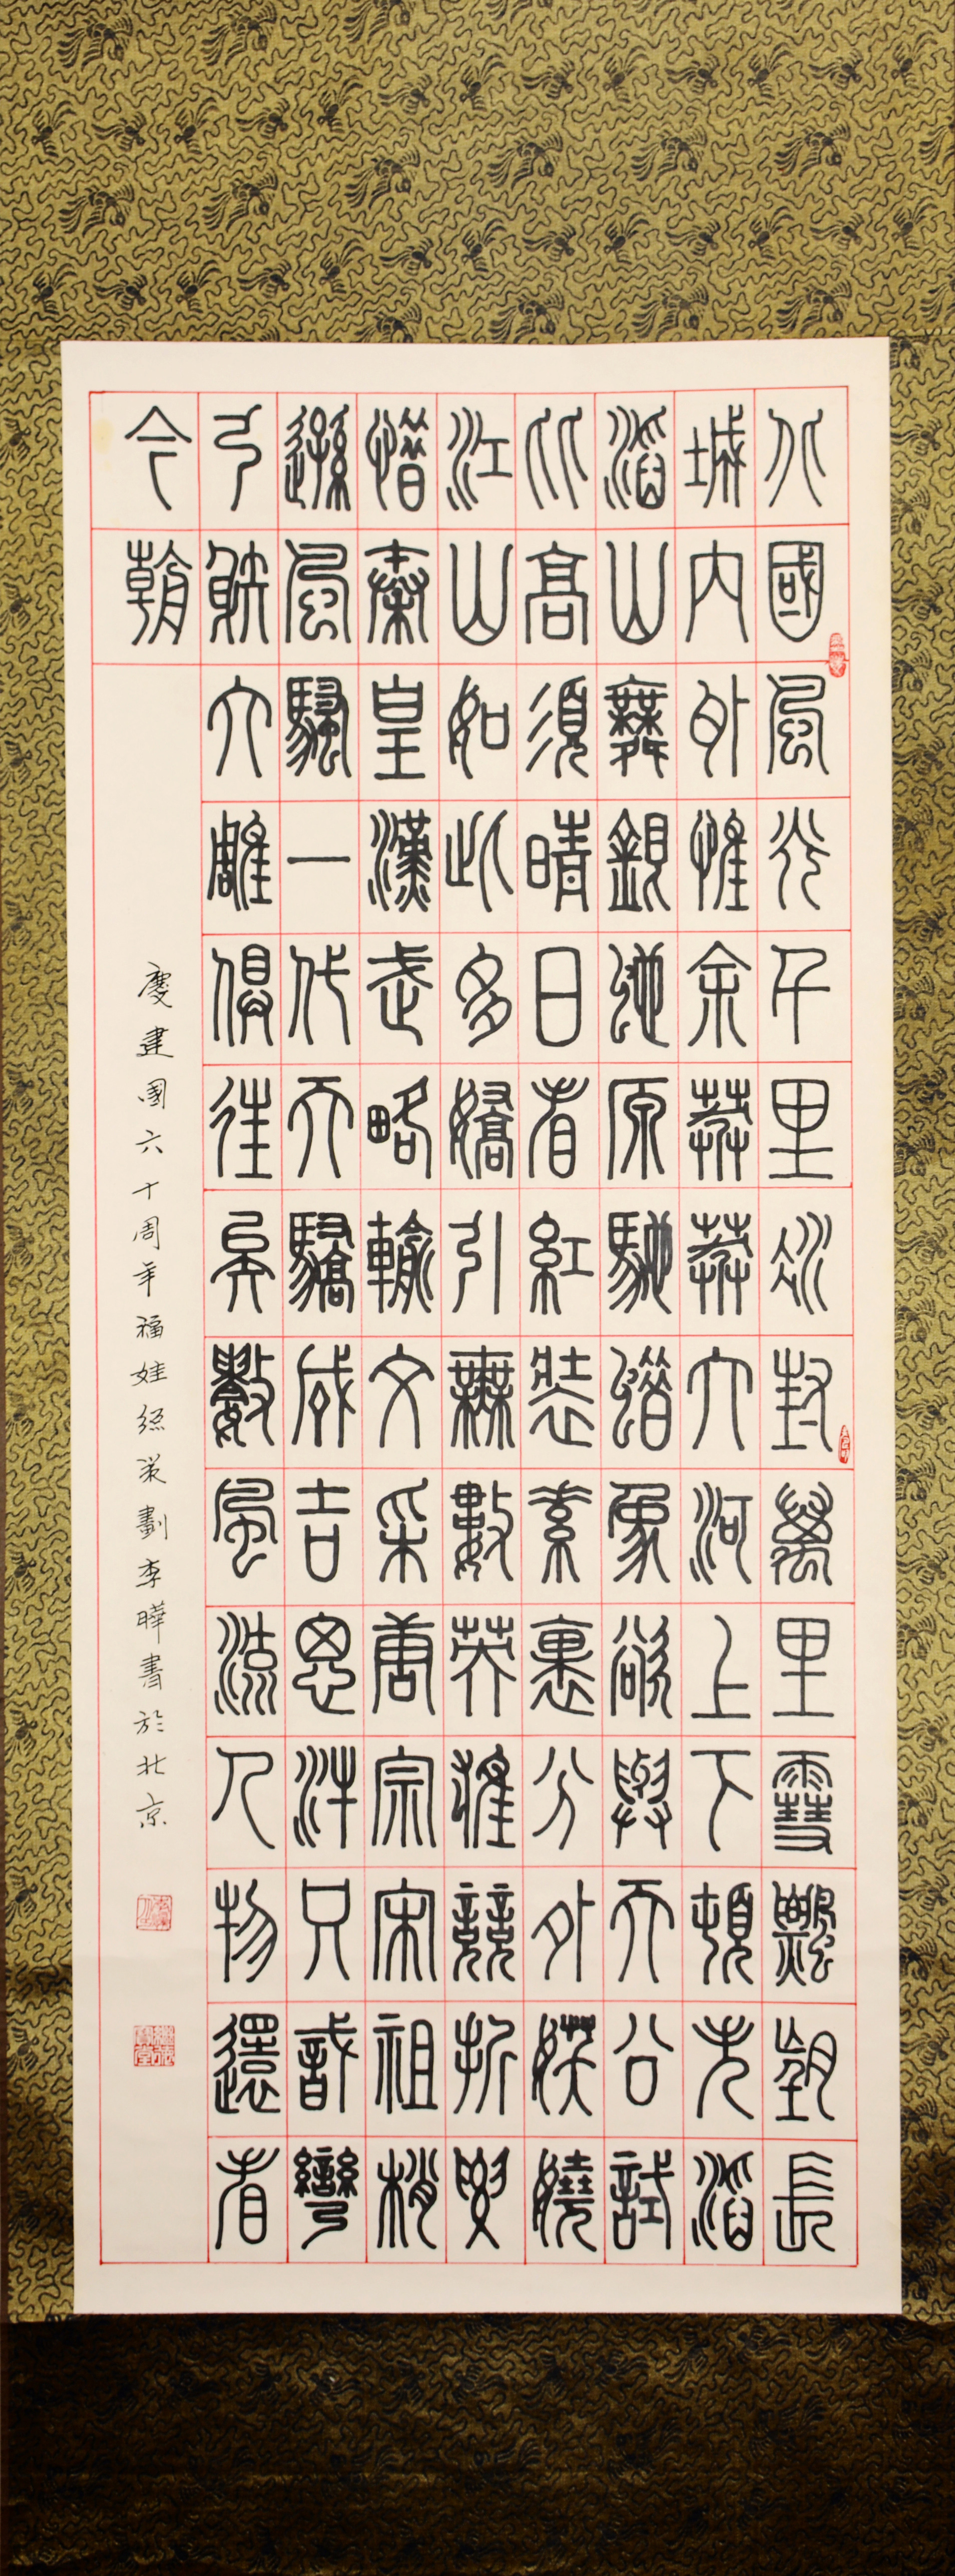 北國風光千里冰封萬里雪飄望長
城內外惟余莽莽大河上下頓失滔
滔山舞銀蛇原馳蠟象欲與天公試
比高須晴日看紅裝素裹分外妖嬈
江山如此多嬌引無數英雄競折腰
惜秦皇漢武略輸文采唐宗宋祖稍
遜風騷一代天驕成吉思汗只識彎
弓射大雕俱往矣數風流人物還看
今朝
慶建國六十周年福娃總策劃李曄書於北京